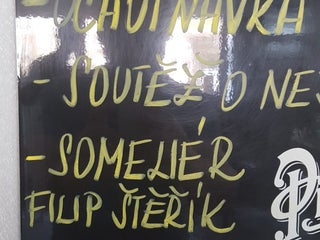 - OCHUTNÁVKA
- SOUTĚŽ O NEJ
- SOMELIÉR
FILIP ŠTĚŘÍK